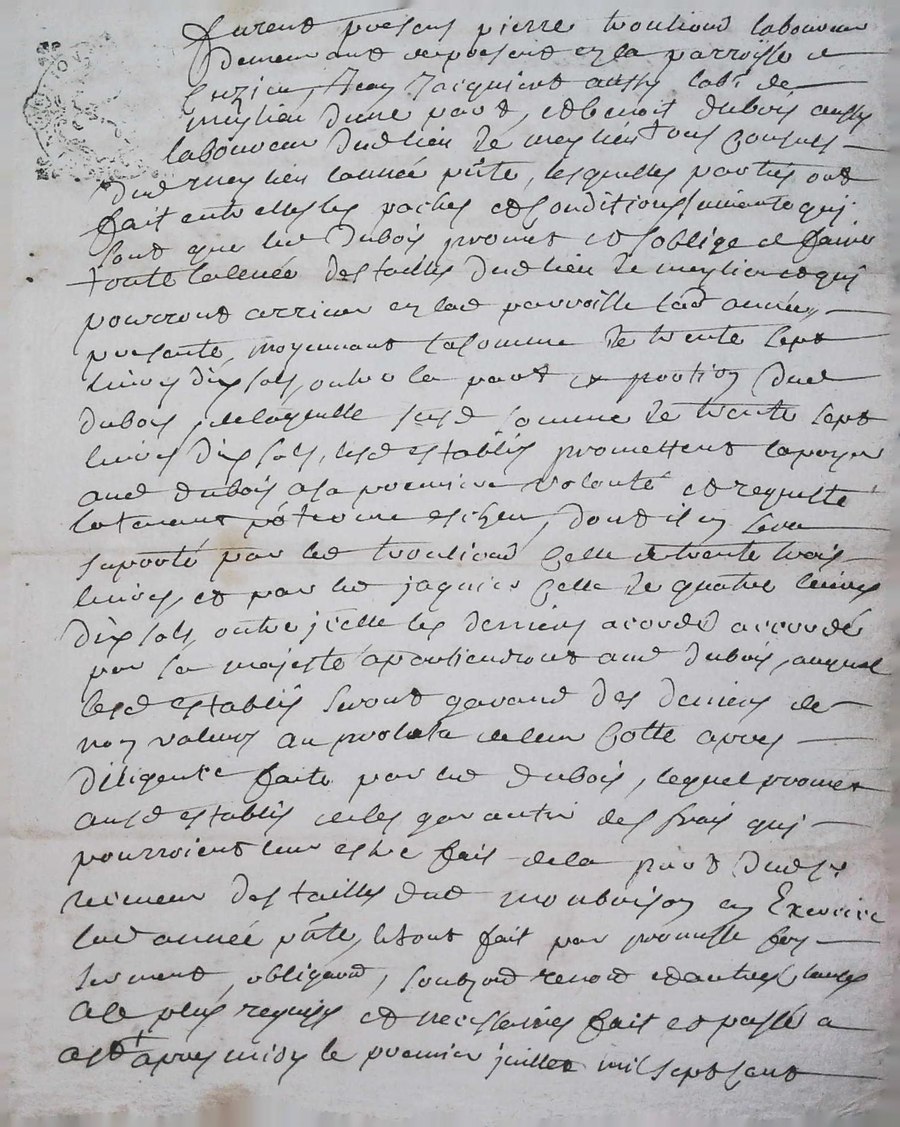 furent presens pierre troulioud laboureur
demeurant de present en la parroisse de
Jean Jacquient aussy lab.r de
meylieu d'une part, et benoit dubois aussy
laboureur dud lieu de meylieu tous consuls
dud meylieu l'année pnte, lesquelles parties ont
fait entr elles les paches et conditions suivante qui
sont que led dubois promet et soblige de faire
toute la levée des tailles dud lieu de meylieu et qui
pourront arriver en lad parroisse lad année
presente, moyennant la somme de trente sept
livres dix sols, outre la part et portion dud
dubois, de laquelle susd somme de trente sept
livres dix sols, lesd establis promettent la payer
aud dubois a sa premiere volonté et requeste
dont il en sera
suporté par led troulioud celle de trente trois
livres, et par led jaquier celle de quatre livres
dix sols, outre icelle les deniers acordé accordé
par sa majesté apartiendront aud dubois, auquel
lesd establis seront garand des deniers de
non valeurs au prolata de leur cotte apres
diligence faite par led dubois, lequel promet
ausd establis de les garantir des frais qui
pourroient leur estre fait de la part dud sr
receveur des tailles dud monbrison en Exercice
lad année pnte, le tout fait par promesse foy
serment, obligaon, soubzon renon et autres clauses
a le plus requises et necessaires fait et passé a
apres midy le premier juillet mil sept cent